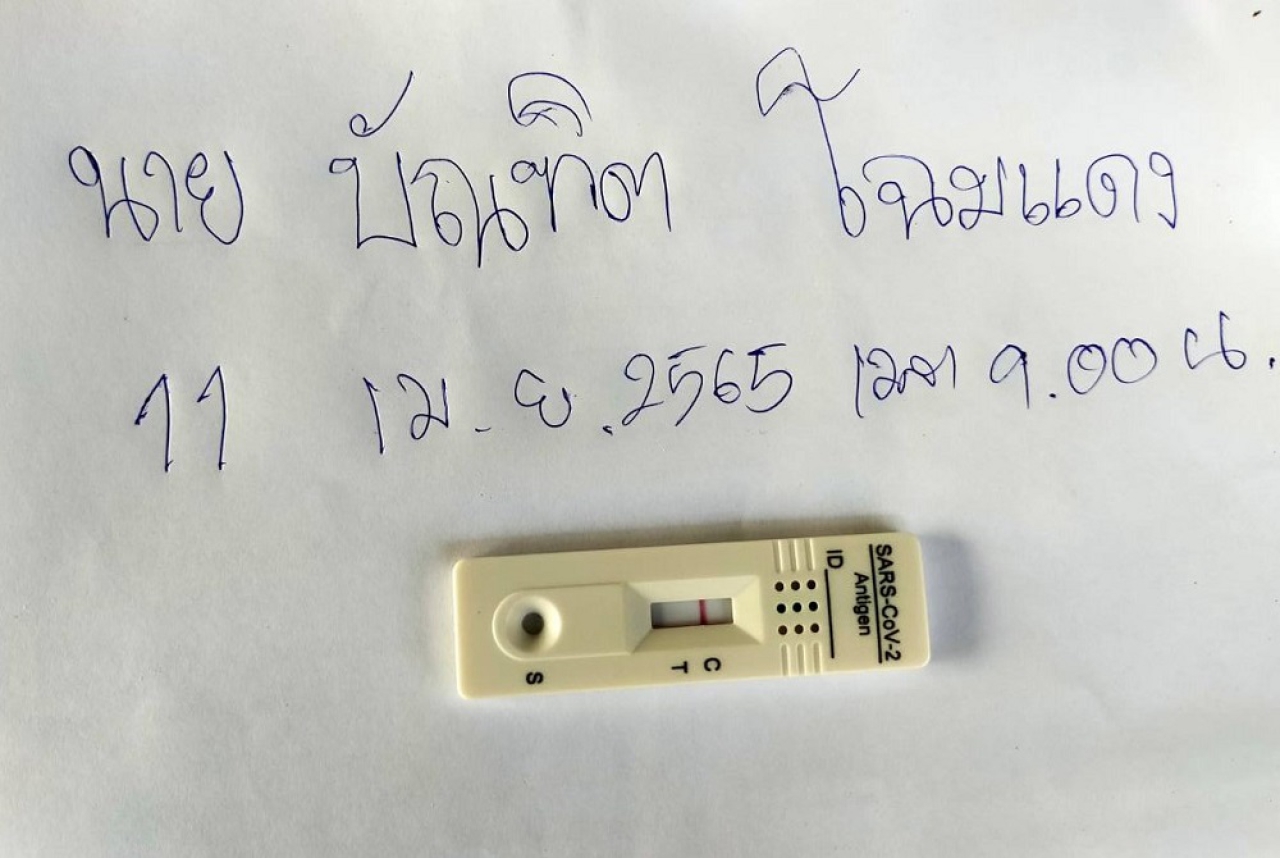 นาย บัณฑิต โฉมแดง
11 เม.ย. 2565 เวลา 9.00 น.
SARS-CoV-2
Antigen
ID
C
T
S